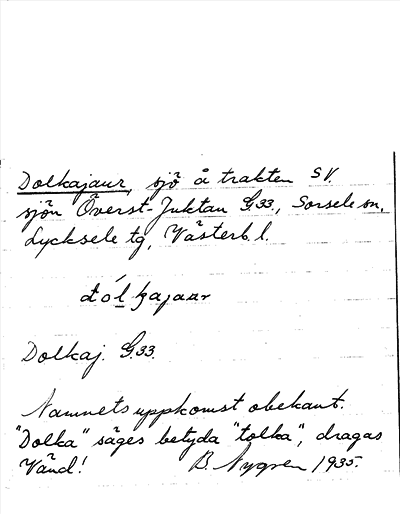 Dolkajaur, sjö å trakten SV.
sjön Överst-Juktan G.33., Sorsele sn,
Lycksele tg, Västerb. l.
đólkajaar
Dolkaj. G.33.
Namnets uppkomst obekant.
"Dolka" säges betyda "tolka", dragas
Vänd! B. Nygren 1935.